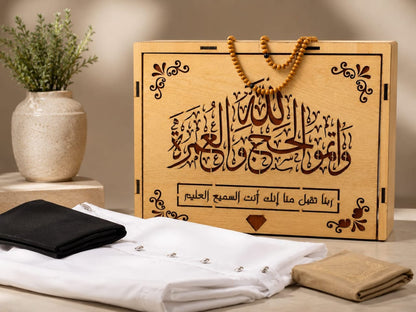 وأتموا الحج والعمرة لله
ربنا تقبل منا إنك أنت السميع العليم